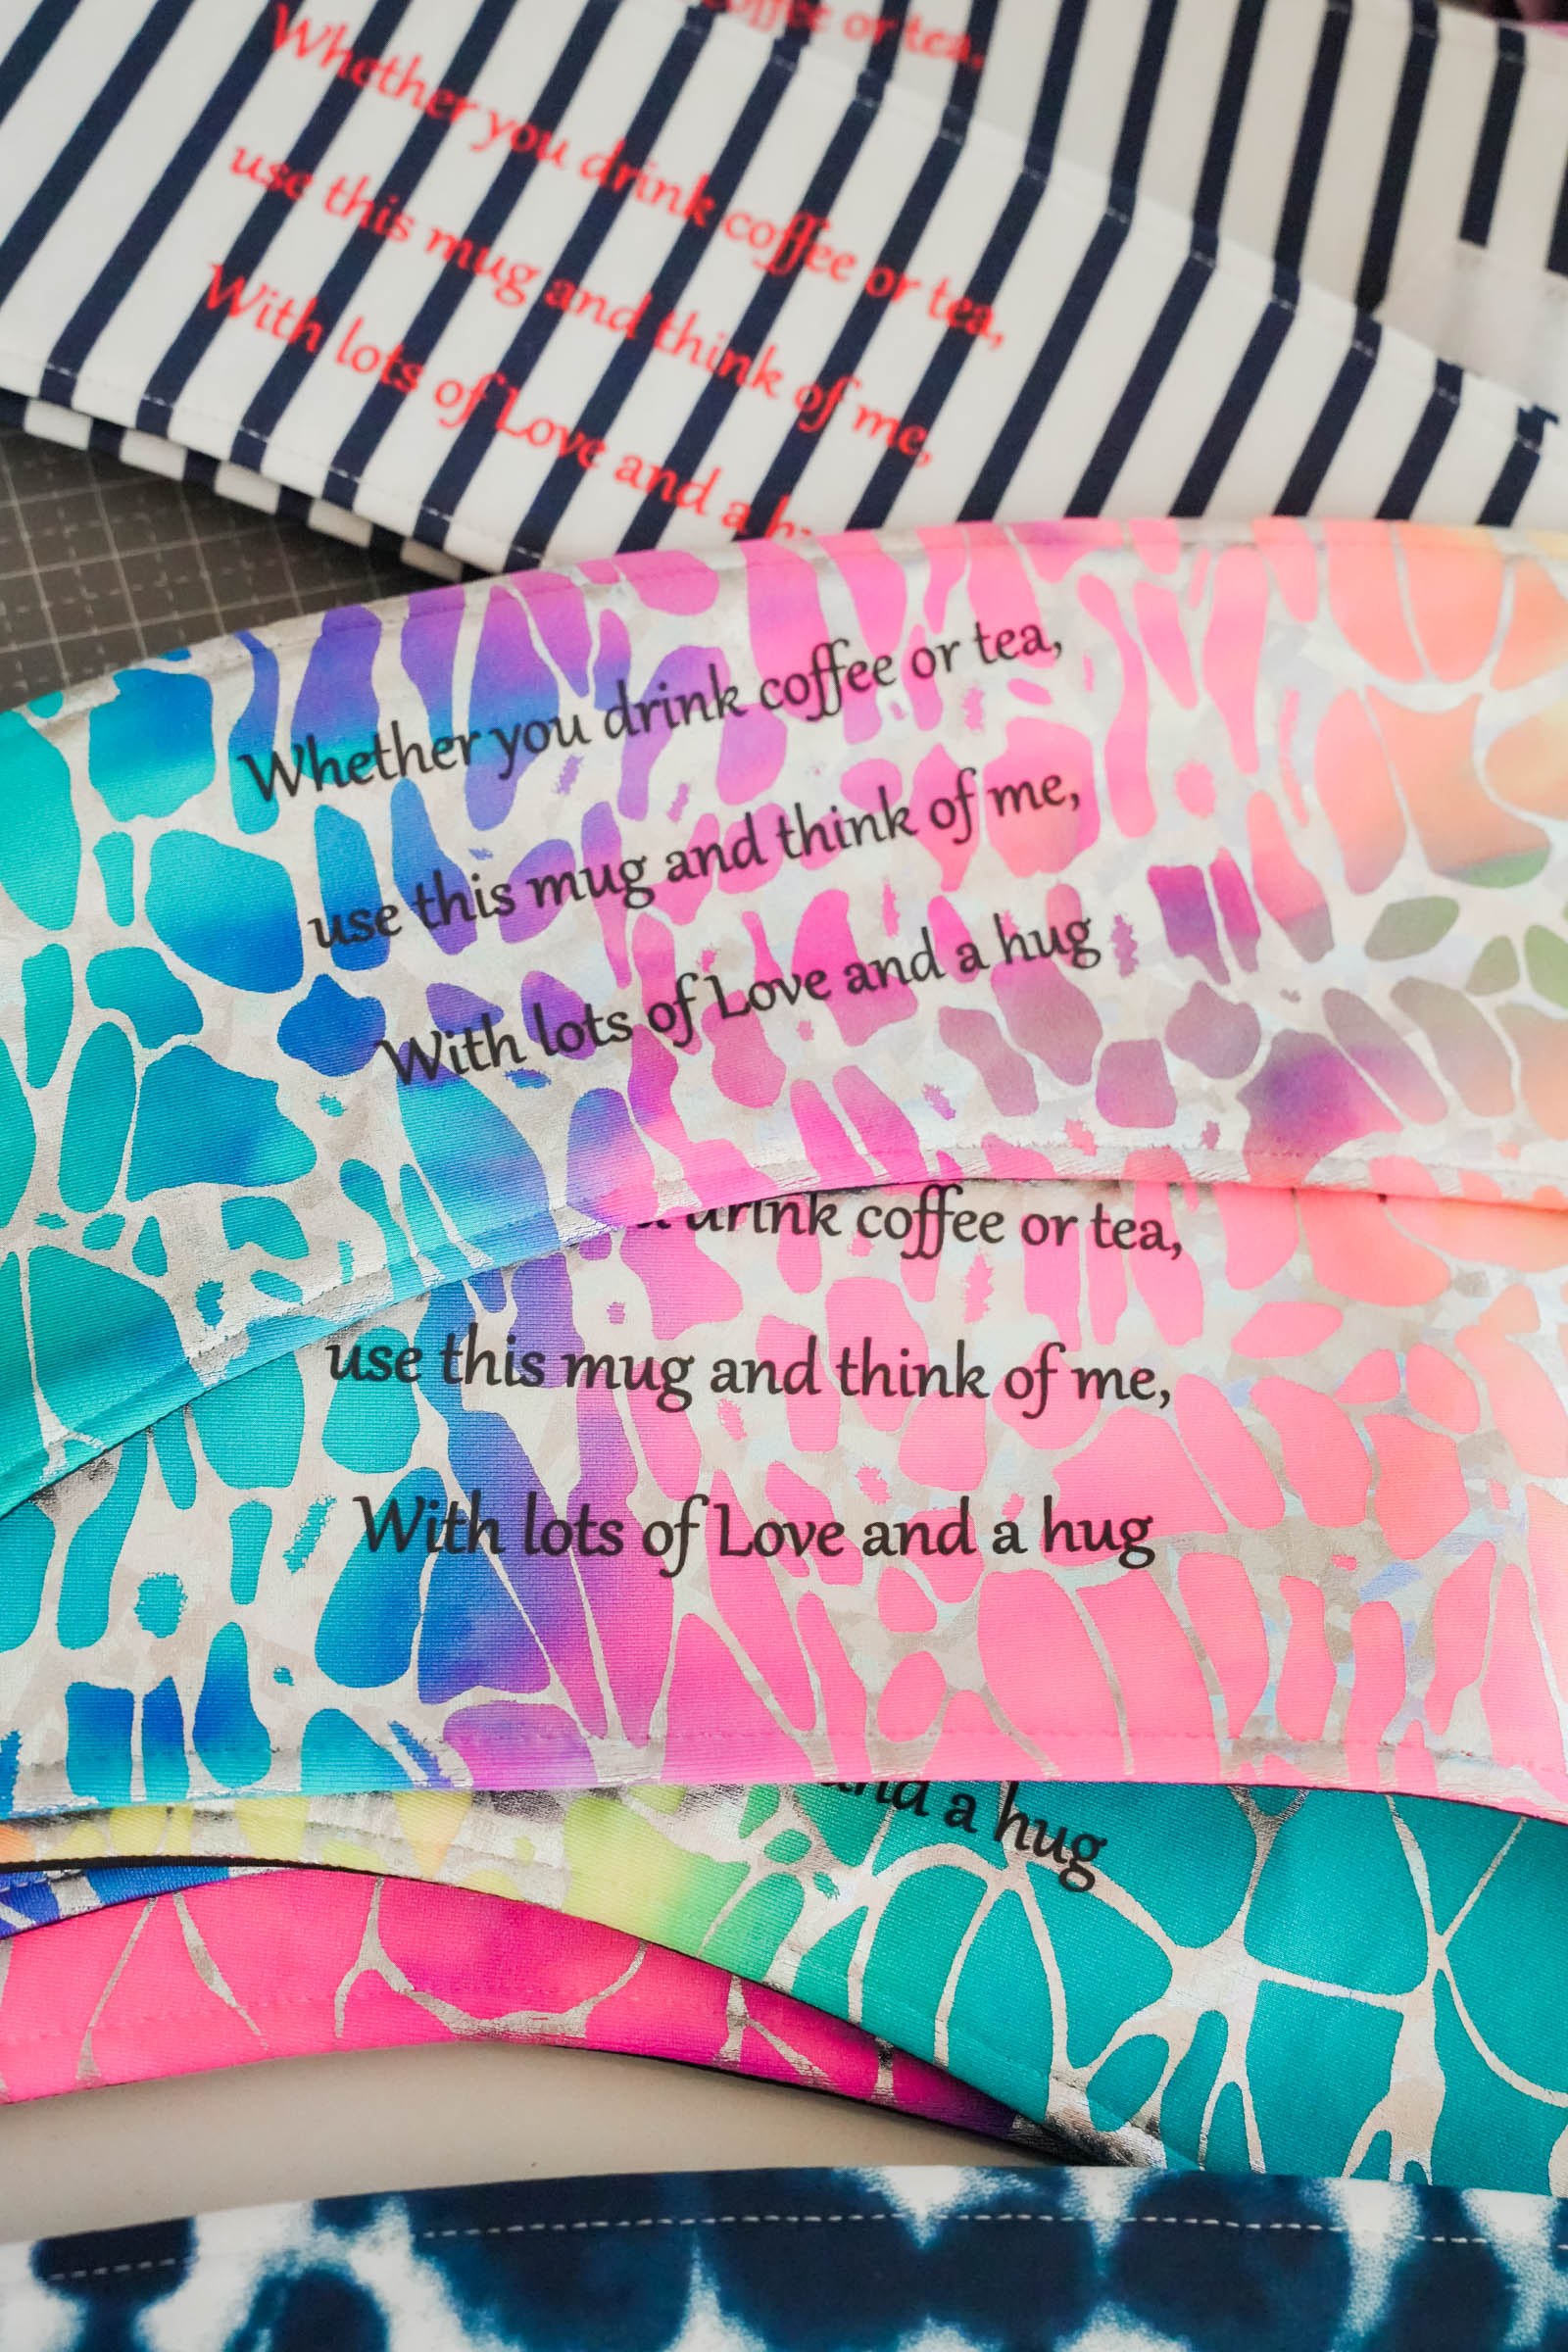 coffee or tea,
Whether you drink coffee or tea,
use this mug and think of me,
With lots of Love and a
Whether you drink coffee or tea,
use this mug and think of me,
With lots of Love and a hug
drink coffee or tea,
use this mug and think of me,
With lots of Love and a hug
and a hug